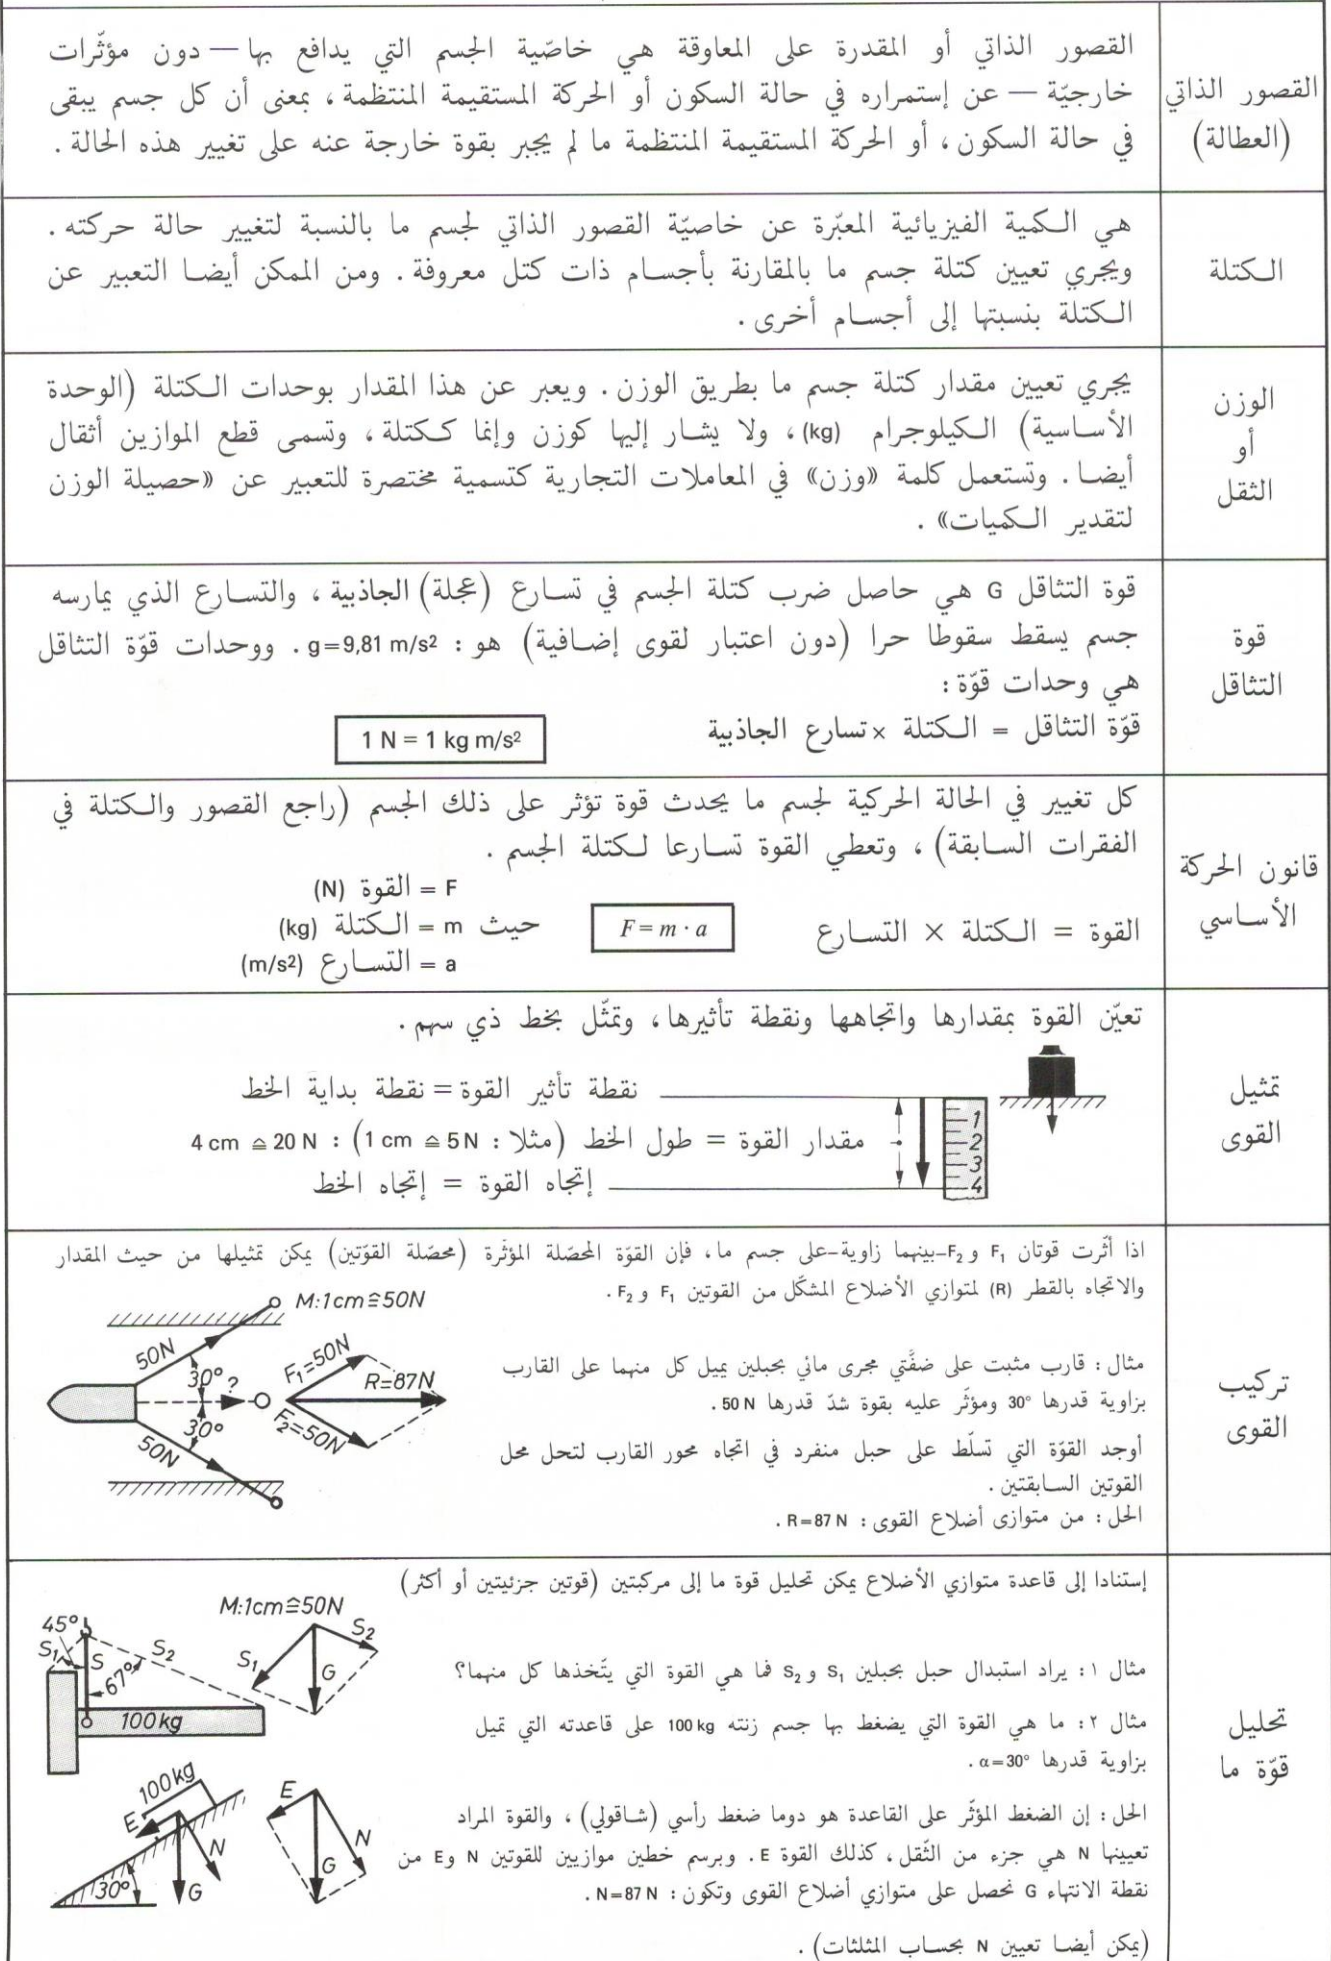 القصور الذاتي
(العطالة)
القصور الذاتي أو المقدرة على المعاوقة هي خاصّية الجسم التي يدافع بها — دون مؤثّرات
خارجيّة — عن إستمراره في حالة السكون أو الحركة المستقيمة المنتظمة، بمعنى أن كل جسم يبقى
في حالة السكون، أو الحركة المستقيمة المنتظمة ما لم يجبر بقوة خارجة عنه على تغيير هذه الحالة.
الكتلة
هي الكمية الفيزيائية المعبّرة عن خاصيّة القصور الذاتي لجسم ما بالنسبة لتغيير حالة حركته.
ويجري تعيين كتلة جسم ما بالمقارنة بأجسام ذات كتل معروفة. ومن الممكن أيضا التعبير عن
الكتلة بنسبتها إلى أجسام أخرى.
الوزن
أو
الثقل
يجري تعيين مقدار كتلة جسم ما بطريق الوزن. ويعبر عن هذا المقدار بوحدات الكتلة (الوحدة
الأساسية) الكيلوجرام (kg)، ولا يشار إليها كوزن وإنما ككتلة، وتسمى قطع الموازين أثقال
أيضا. وتستعمل كلمة «وزن» في المعاملات التجارية كتسمية مختصرة للتعبير عن «حصيلة الوزن
لتقدير الكميات».
قوة
التثاقل
قوة التثاقل G هي حاصل ضرب كتلة الجسم في تسارع (عجلة) الجاذبية، والتسارع الذي يمارسه
جسم يسقط سقوطا حرا (دون اعتبار لقوى إضافية) هو: g=9,81 m/s². ووحدات قوّة التثاقل
هي وحدات قوّة:
قوّة التثاقل = الكتلة × تسارع الجاذبية
1 N = 1 kg m/s²
قانون الحركة
الأساسي
كل تغيير في الحالة الحركية لجسم ما يحدث قوة تؤثر على ذلك الجسم (راجع القصور والكتلة في
الفقرات السابقة)، وتعطي القوة تسارعا لكتلة الجسم.
القوة = الكتلة × التسارع
F = m · a
حيث
F = القوة (N)
m = الكتلة (kg)
a = التسارع (m/s²)
تمثيل
القوى
تعيّن القوة بمقدارها واتجاهها ونقطة تأثيرها، وتمثّل بخط ذي سهم.
نقطة تأثير القوة = نقطة بداية الخط
مقدار القوة = طول الخط (مثلا: 1 cm ≙ 5 N): 4 cm ≙ 20 N
إتجاه القوة = إتجاه الخط
1
2
3
4
تركيب
القوى
اذا أثّرت قوتان F₁ و F₂–بينهما زاوية–على جسم ما، فإن القوّة المحصّلة المؤثّرة (محصّلة القوّتين) يمكن تمثيلها من حيث المقدار
والاتجاه بالقطر (R) لمتوازي الأضلاع المشكّل من القوتين F₁ و F₂.
مثال: قارب مثبت على ضفّتي مجرى مائي بحبلين يميل كل منهما على القارب
بزاوية قدرها 30° ومؤثّر عليه بقوة شدّ قدرها 50 N.
أوجد القوّة التي تسلّط على حبل منفرد في اتجاه محور القارب لتحل محل
القوتين السابقتين.
الحل: من متوازى أضلاع القوى: R=87 N.
M:1cm≙50N
50N
30°
?
30°
50N
F₁=50N
R=87N
F₂=50N
تحليل
قوّة ما
إستنادا إلى قاعدة متوازي الأضلاع يمكن تحليل قوة ما إلى مركبتين (قوتين جزئيتين أو أكثر)
مثال ١: يراد استبدال حبل بحبلين S₁ و S₂ فما هي القوة التي يتّخذها كل منهما؟
مثال ٢: ما هي القوة التي يضغط بها جسم زنته 100 kg على قاعدته التي تميل
بزاوية قدرها α=30°.
الحل: إن الضغط المؤثّر على القاعدة هو دوما ضغط رأسي (شاقولي)، والقوة المراد
تعيينها N هي جزء من الثّقل، كذلك القوة E. وبرسم خطين موازيين للقوتين N وE من
نقطة الانتهاء G نحصل على متوازي أضلاع القوى وتكون: N=87 N.
(يمكن أيضا تعيين N بحساب المثلثات).
M:1cm≙50N
45°
S₁
S
S₂
67°
100kg
S₁
S₂
G
100kg
E
N
G
30°
E
N
G